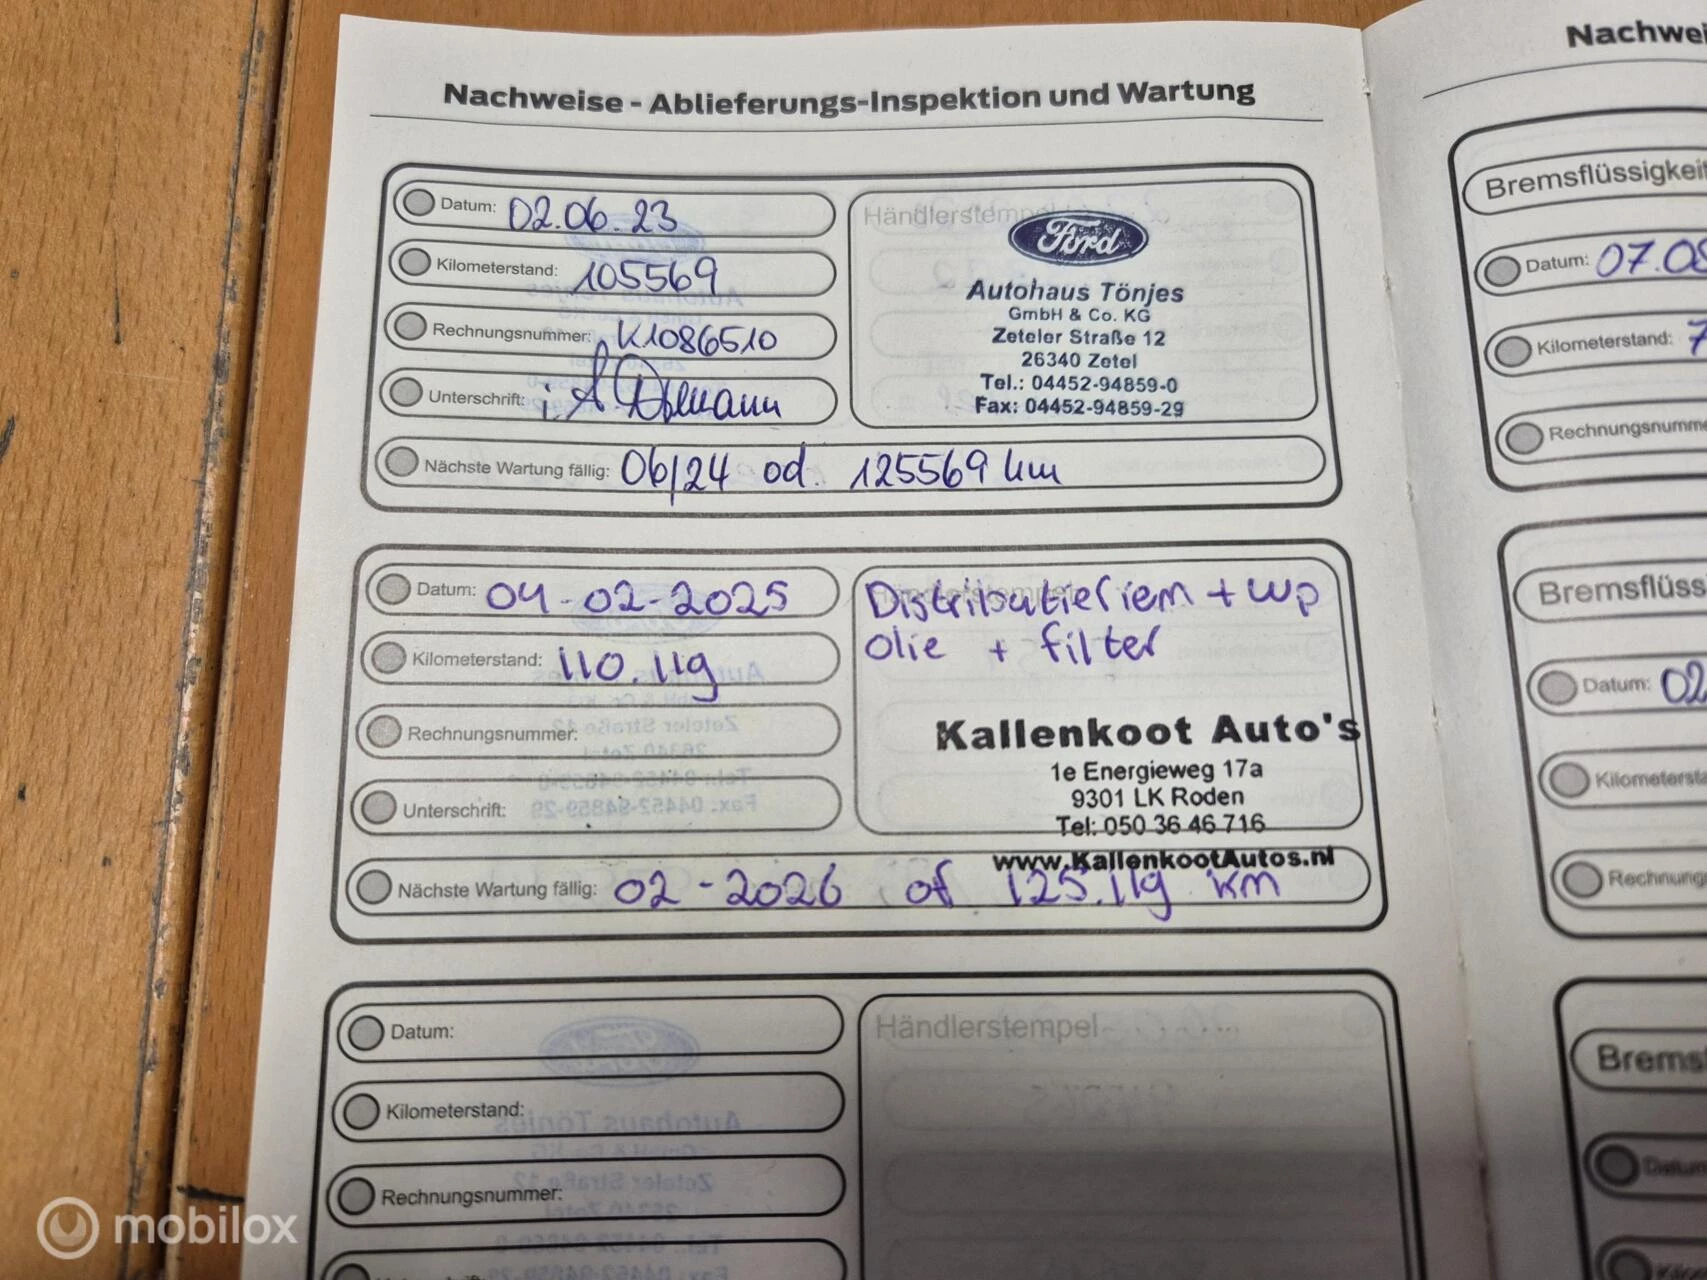 Nachweise - Ablieferungs-Inspektion und Wartung
Datum: 02.06.23
Kilometerstand: 105569
Rechnungsnummer: K1086510
Unterschrift: i. A
Nächste Wartung fällig: 06/24 od. 125569 km
Händlerstempel
Ford
Autohaus Tönjes
GmbH & Co. KG
Zeteler Straße 12
26340 Zetel
Tel.: 04452-94859-0
Fax: 04452-94859-29
Datum: 04-02-2025
Kilometerstand: 110.119
Rechnungsnummer:
Unterschrift:
Nächste Wartung fällig: 02-2026 of 125.119 km
Händlerstempel
Distributieriem + wp
olie + filter
Kallenkoot Auto's
1e Energieweg 17a
9301 LK Roden
Tel: 050 36 46 716
www.KallenkootAutos.nl
Datum:
Kilometerstand:
Rechnungsnummer:
Händlerstempel
Nachwei
Bremsflüssigkeit
Datum: 07.08
Kilometerstand: 7
Rechnungsnumme
Bremsflüss
Datum: 02
Kilometersta
Rechnung
Brems
Datum
mobilox